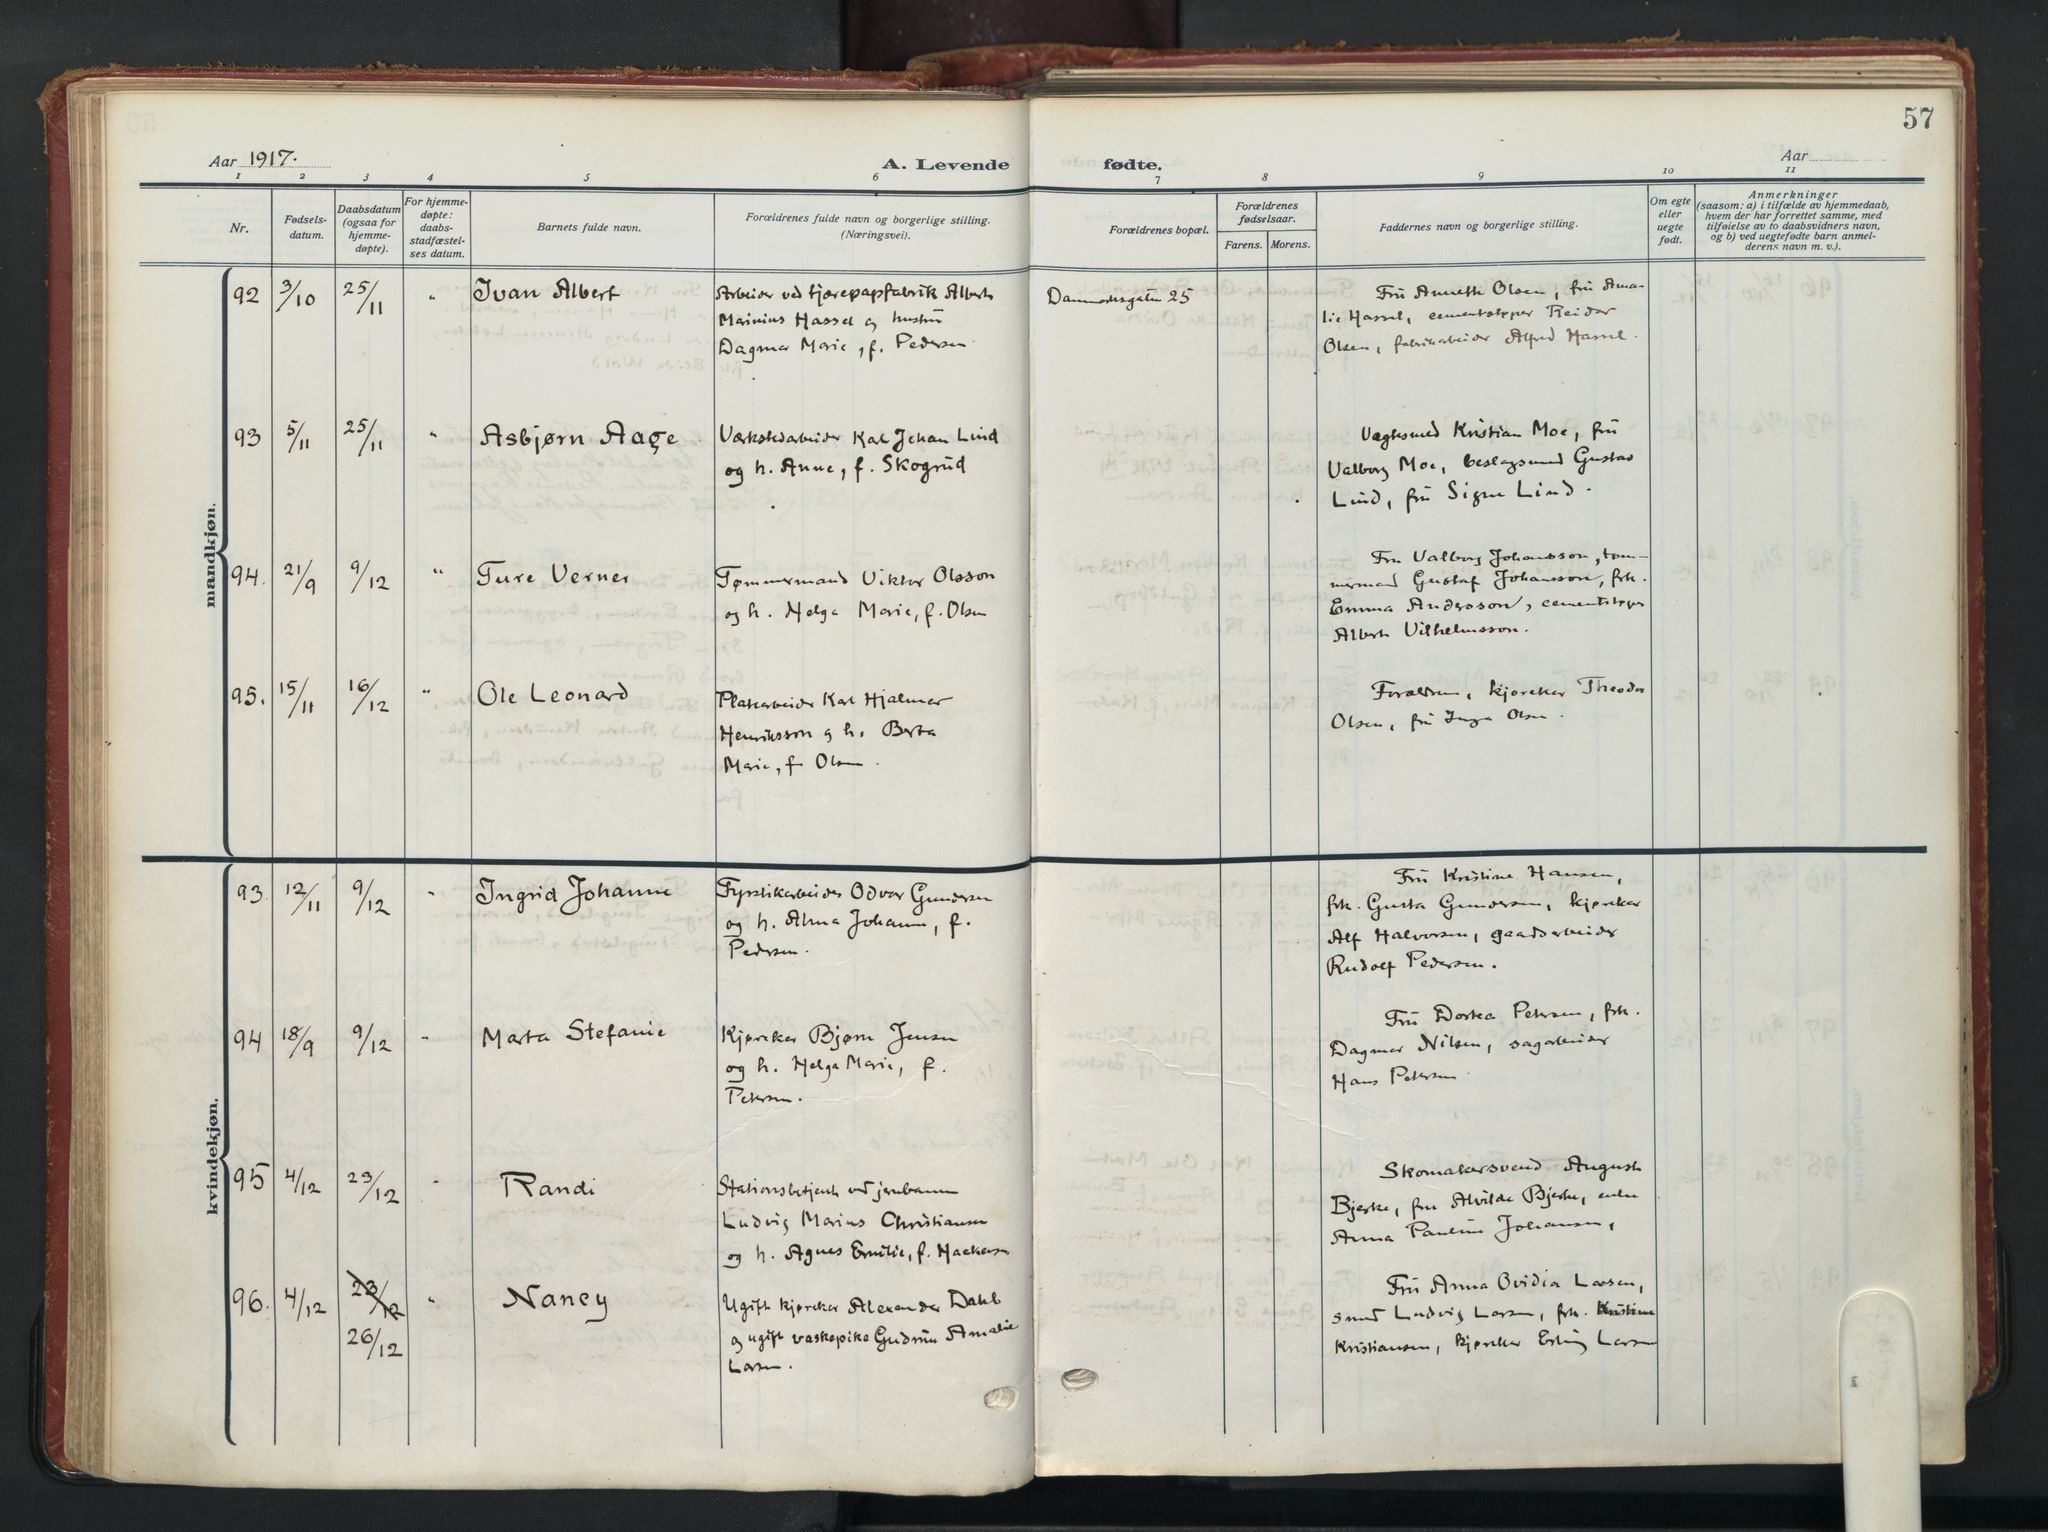 57
Aar 1917.
A. Levende fødte.
Aar
1 2 3 4 5 6 7 8 9 10 11
Nr.
Fødsels-
datum.
Daabsdatum
(ogsaa for
hjemme-
døpte).
For hjemme-
døpte:
daabs-
stadfæstel-
ses datum.
Barnets fulde navn.
Forældrenes fulde navn og borgerlige stilling.
(Næringsvei).
Forældrenes bopæl.
Forældrenes
fødselsaar.
Farens. Morens.
Faddernes navn og borgerlige stilling.
Om egte
eller
uegte
født.
Anmerkninger
(saasom: a) i tilfælde av hjemmedaab,
hvem der har forrettet samme, med
tilføielse av to daabsvidners navn,
og b) ved uegtefødte barn anmel-
derens navn m. v.).
mandkjøn.
92 3/10 25/11 " Ivan Albert
Arbeider ved tjærepapfabrik Albert
Marinius Hassel og hustru
Dagmar Marie, f. Pedersen
Danmarksgaten 25
Fru Annette Olsen, fru Ama-
lie Hassel, cementstøper Reidar
Olsen, fabrikarbeider Alfred Hassel.
93 5/11 25/11 " Asbjørn Aage
Værkstedarbeider Karl Johan Lind
og h. Anne, f. Skogrud
Vægtsmed Kristian Moe, fru
Valborg Moe, beslagsmed Gustav
Lind, fru Signe Lind.
94. 21/9 9/12 " Ture Verner
Tømmermand Viktor Olsson
og h. Helga Marie, f. Olsen
Fru Valborg Johansson, tøm-
mermand Gustaf Johansson, frk.
Emma Andersson, cementstøper
Albert Vilhelmsson.
95. 15/11 16/12 " Ole Leonard
Platearbeider Karl Hjalmar
Henriksson og h. Berta
Marie, f. Olsen.
Forældrene, kjørekar Theodor
Olsen, fru Inga Olsen.
kvindekjøn.
93. 12/11 9/12 " Ingrid Johanne
Fyrstikarbeider Odvar Gundersen
og h. Alma Johanne, f.
Pedersen.
Fru Kristine Hansen,
frk. Gusta Gundersen, kjørekar
Alf Halvorsen, gaardsarbeider
Rudolf Pedersen.
94 18/9 9/12 " Marta Stefanie
Kjørekar Bjørn Jensen
og h. Helga Marie, f.
Petersen.
Fru Dortea Petersen, frk.
Dagmar Nilsen, sagarbeider
Hans Petersen
95 4/12 23/12 " Randi
Stationsbetjent ved jernbanen
Ludvig Marius Christiansen
og h. Agnes Emilie, f.
Skomakersvend August
Bjerke, fru Alvilde Bjerke, enke
Anna Pauline Johansen,
96. 4/12 23/12 " Nancy
26/12
Ugift kjørekar Alexander Dahl
og ugift vaskepike Gudrun Amalie
Larsen.
Fru Anna Ovidia Larsen,
smed Ludvig Larsen, frk. Kristine
Kristiansen, kjørekar Erling Larsen